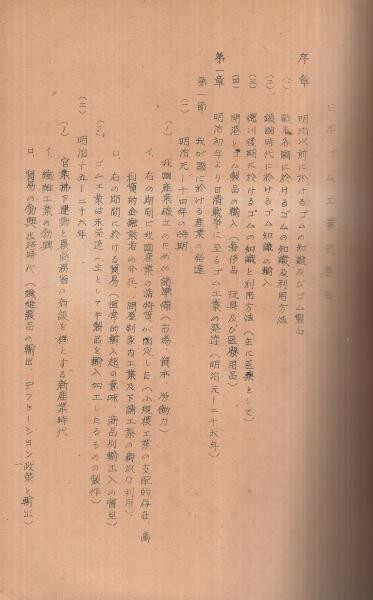 日本ゴム工業史要目
序章 明治以前に於けるゴムの知識及びゴム製品
(一) 欧米各国に於けるゴムの知識及利用方法
(二) 鎖国時代に於けるゴム知識の輸入
(三) 徳川後期に於けるゴムの知識と利用方法(主に医療として)
(四) 開港とゴム製品の輸入(奢侈品 玩具及び医療用品)
第一章 明治初年より日清戦争に至るゴム工業の発達(明治元-二十六年)
第一節 我が国に於ける産業の発達
(一) 明治元-十四年の時期
(1) 我国産業確立のための諸準備(市場、資本、労働力)
イ、右の期間に我国産業の諸特質が固定した(小規模工業の支配的存在、高
利貸的金融業者の介在、問屋制家内工業及下請工業の利用)
ロ、右の期間に於ける貿易(恒常的輸入超の意味、商品別輸出入の管見)
(2) ゴム工業は未発達(主として半製品を輸入加工したるものの製作)
(二) 明治十五-二十八年
(1) 官業払下運動と農商務省の新設を機とする新産業時代
イ、繊維工業の勃興
ロ、貿易の勃興出超時代(繊維製品の輸出 デフレーション政策と輸出)